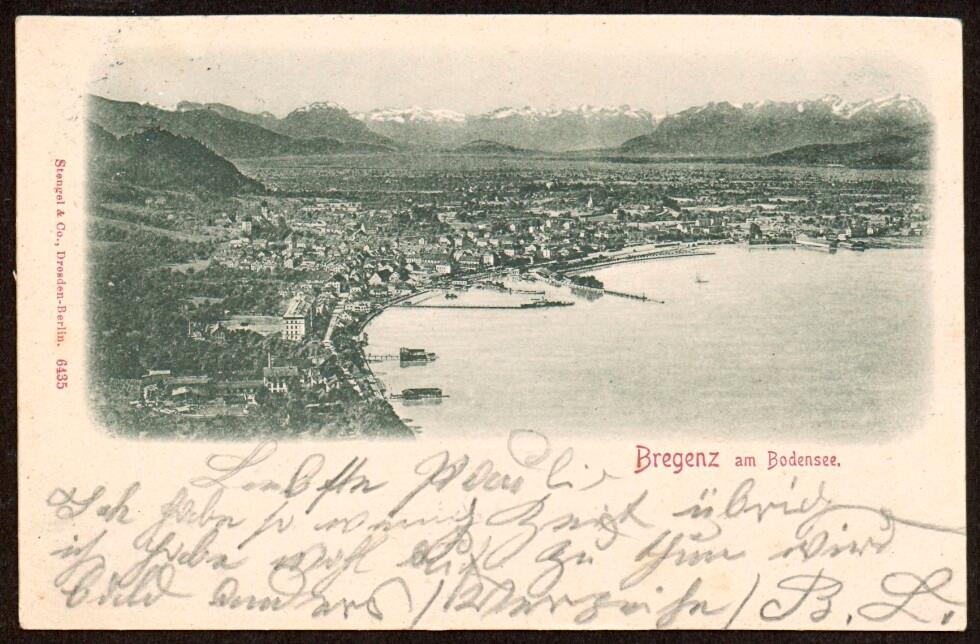 Stengel & Co., Dresden-Berlin. 6435
Bregenz am Bodensee.
Liebste
Ich habe so wenig Zeit übrig
ich habe viel zu thun wird
bald anders (Verzeihe) B. L.